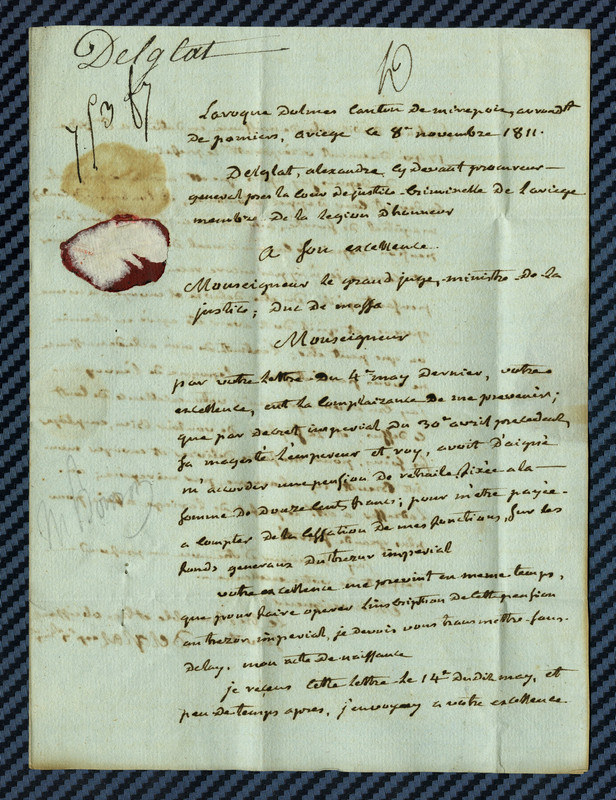 Delglat
Laroque Dolmes Canton de mirepoix, arrondt
de pamiers, ariege le 8e novembre 1811.
Delglat, alexandre cy devant procureur
general pres la cour de justice Criminelle de l'ariege
membre de la legion d'honneur
A son excellence
Monseigneur le grand juge, ministre de la
justice; Duc de massa
Monseigneur
par votre lettre du 4e may dernier, votre
excellence, eut la complaizance de me prevenir;
que par decret imperial du 30e avril precedent,
sa majesté l'empereur et roy, avoit daigné
m'accorder une pension de retraite fixée a la
somme de douze cents francs; pour m'etre payée
a compter de la cessation de mes fonctions, sur les
fonds generaux du trezor imperial
votre excellence me prevint en meme temps,
que pour faire operer l'inscription de cette pension
au trezor imperial, je devois vous transmettre sans
delay, mon acte de naissance
je reçeus cette lettre le 14e dudit may, et
peu de temps apres, j'envoyay a votre excellence